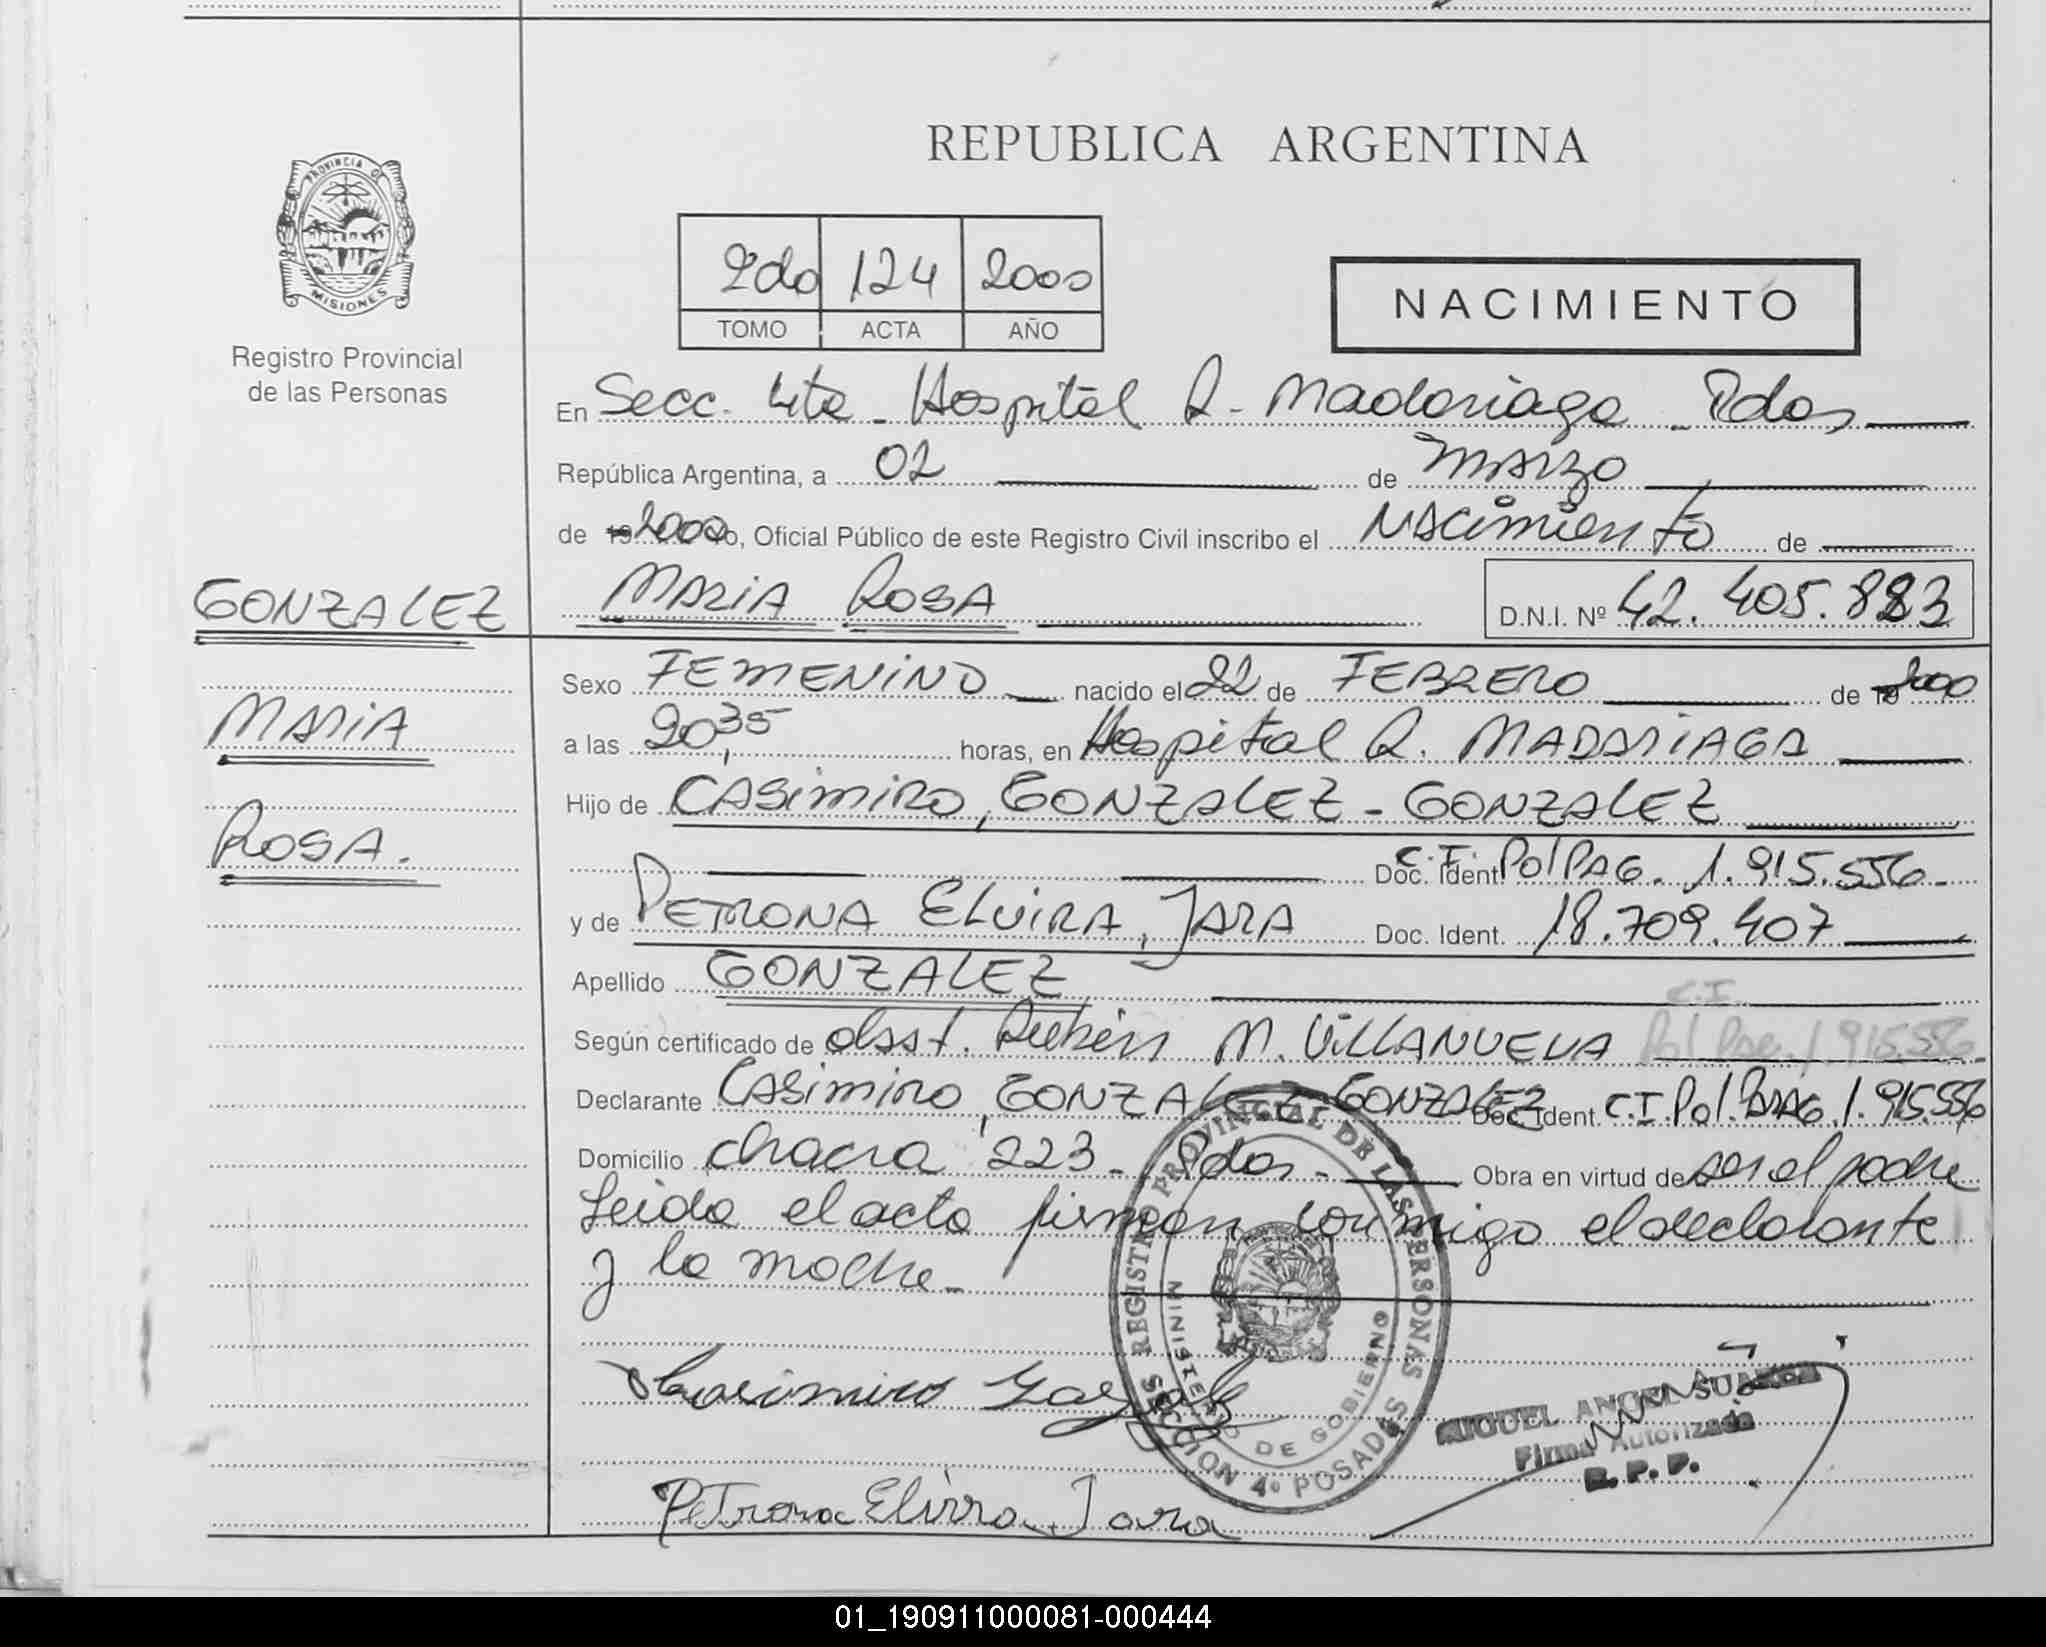 REPUBLICA ARGENTINA
PROVINCIA DE MISIONES
Registro Provincial
de las Personas
2do 124 2000
TOMO ACTA AÑO
NACIMIENTO
En Secc. 4ta - Hospital R. Madariaga - Pdas
República Argentina, a 02 de Marzo
de 2000 Yo, Oficial Público de este Registro Civil inscribo el Nacimiento de
GONZALEZ
MARIA ROSA D.N.I. Nº 42.405.883
MARIA
ROSA.
Sexo FEMENINO nacido el 22 de FEBRERO de 2000
a las 20,35 horas, en Hospital R. MADARIAGA
Hijo de CASIMIRO, GONZALEZ - GONZALEZ
Doc. Ident. C.I. Pol PAG. 1.915.556-
y de PETRONA ELVIRA, JARA Doc. Ident. 18.709.407
Apellido GONZALEZ
C.I.
Según certificado de obsst. Rubén M. VILLANUEVA Pol Par. 1.915.556
Declarante CASIMIRO, GONZALEZ - GONZALEZ Doc. Ident. C.I Pol. PARAG. 1.915.556
Domicilio chacra 223 - Pdas - Obra en virtud de ser el padre
Leida el acta firman conmigo el declarante
y la madre -
REGISTRO PROVINCIAL DE LAS PERSONAS
MINISTERIO DE GOBIERNO
SECCION 4º POSADAS
Casimiro Gonzalez
MIGUEL ANGEL SUAREZ
Firma Autorizada
R.P.P.
Petrona Elvira Jara
01_190911000081-000444